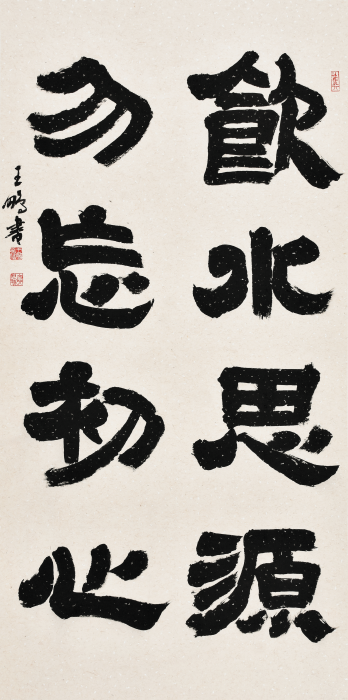 飲水思源
勿忘初心
王鵬書